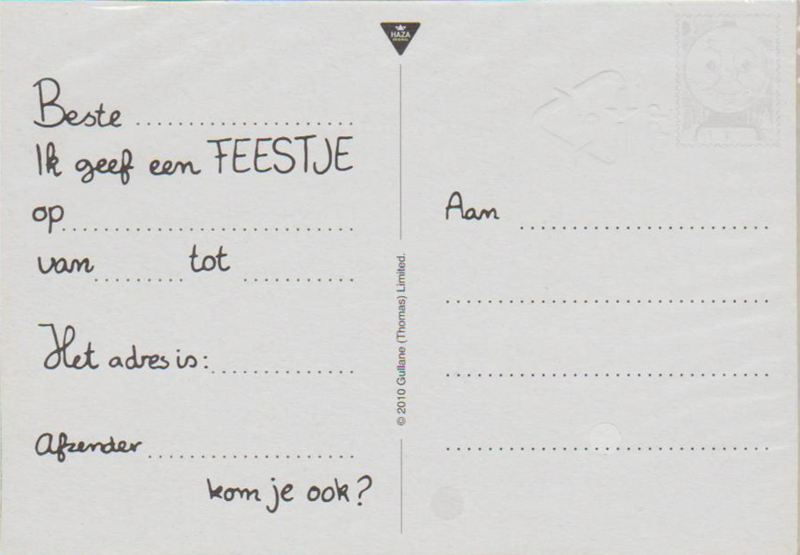 HAZA
Beste
Ik geef een FEESTJE
op
van tot
Het adres is:
Afzender
kom je ook?
© 2010 Gullane (Thomas) Limited.
Aan